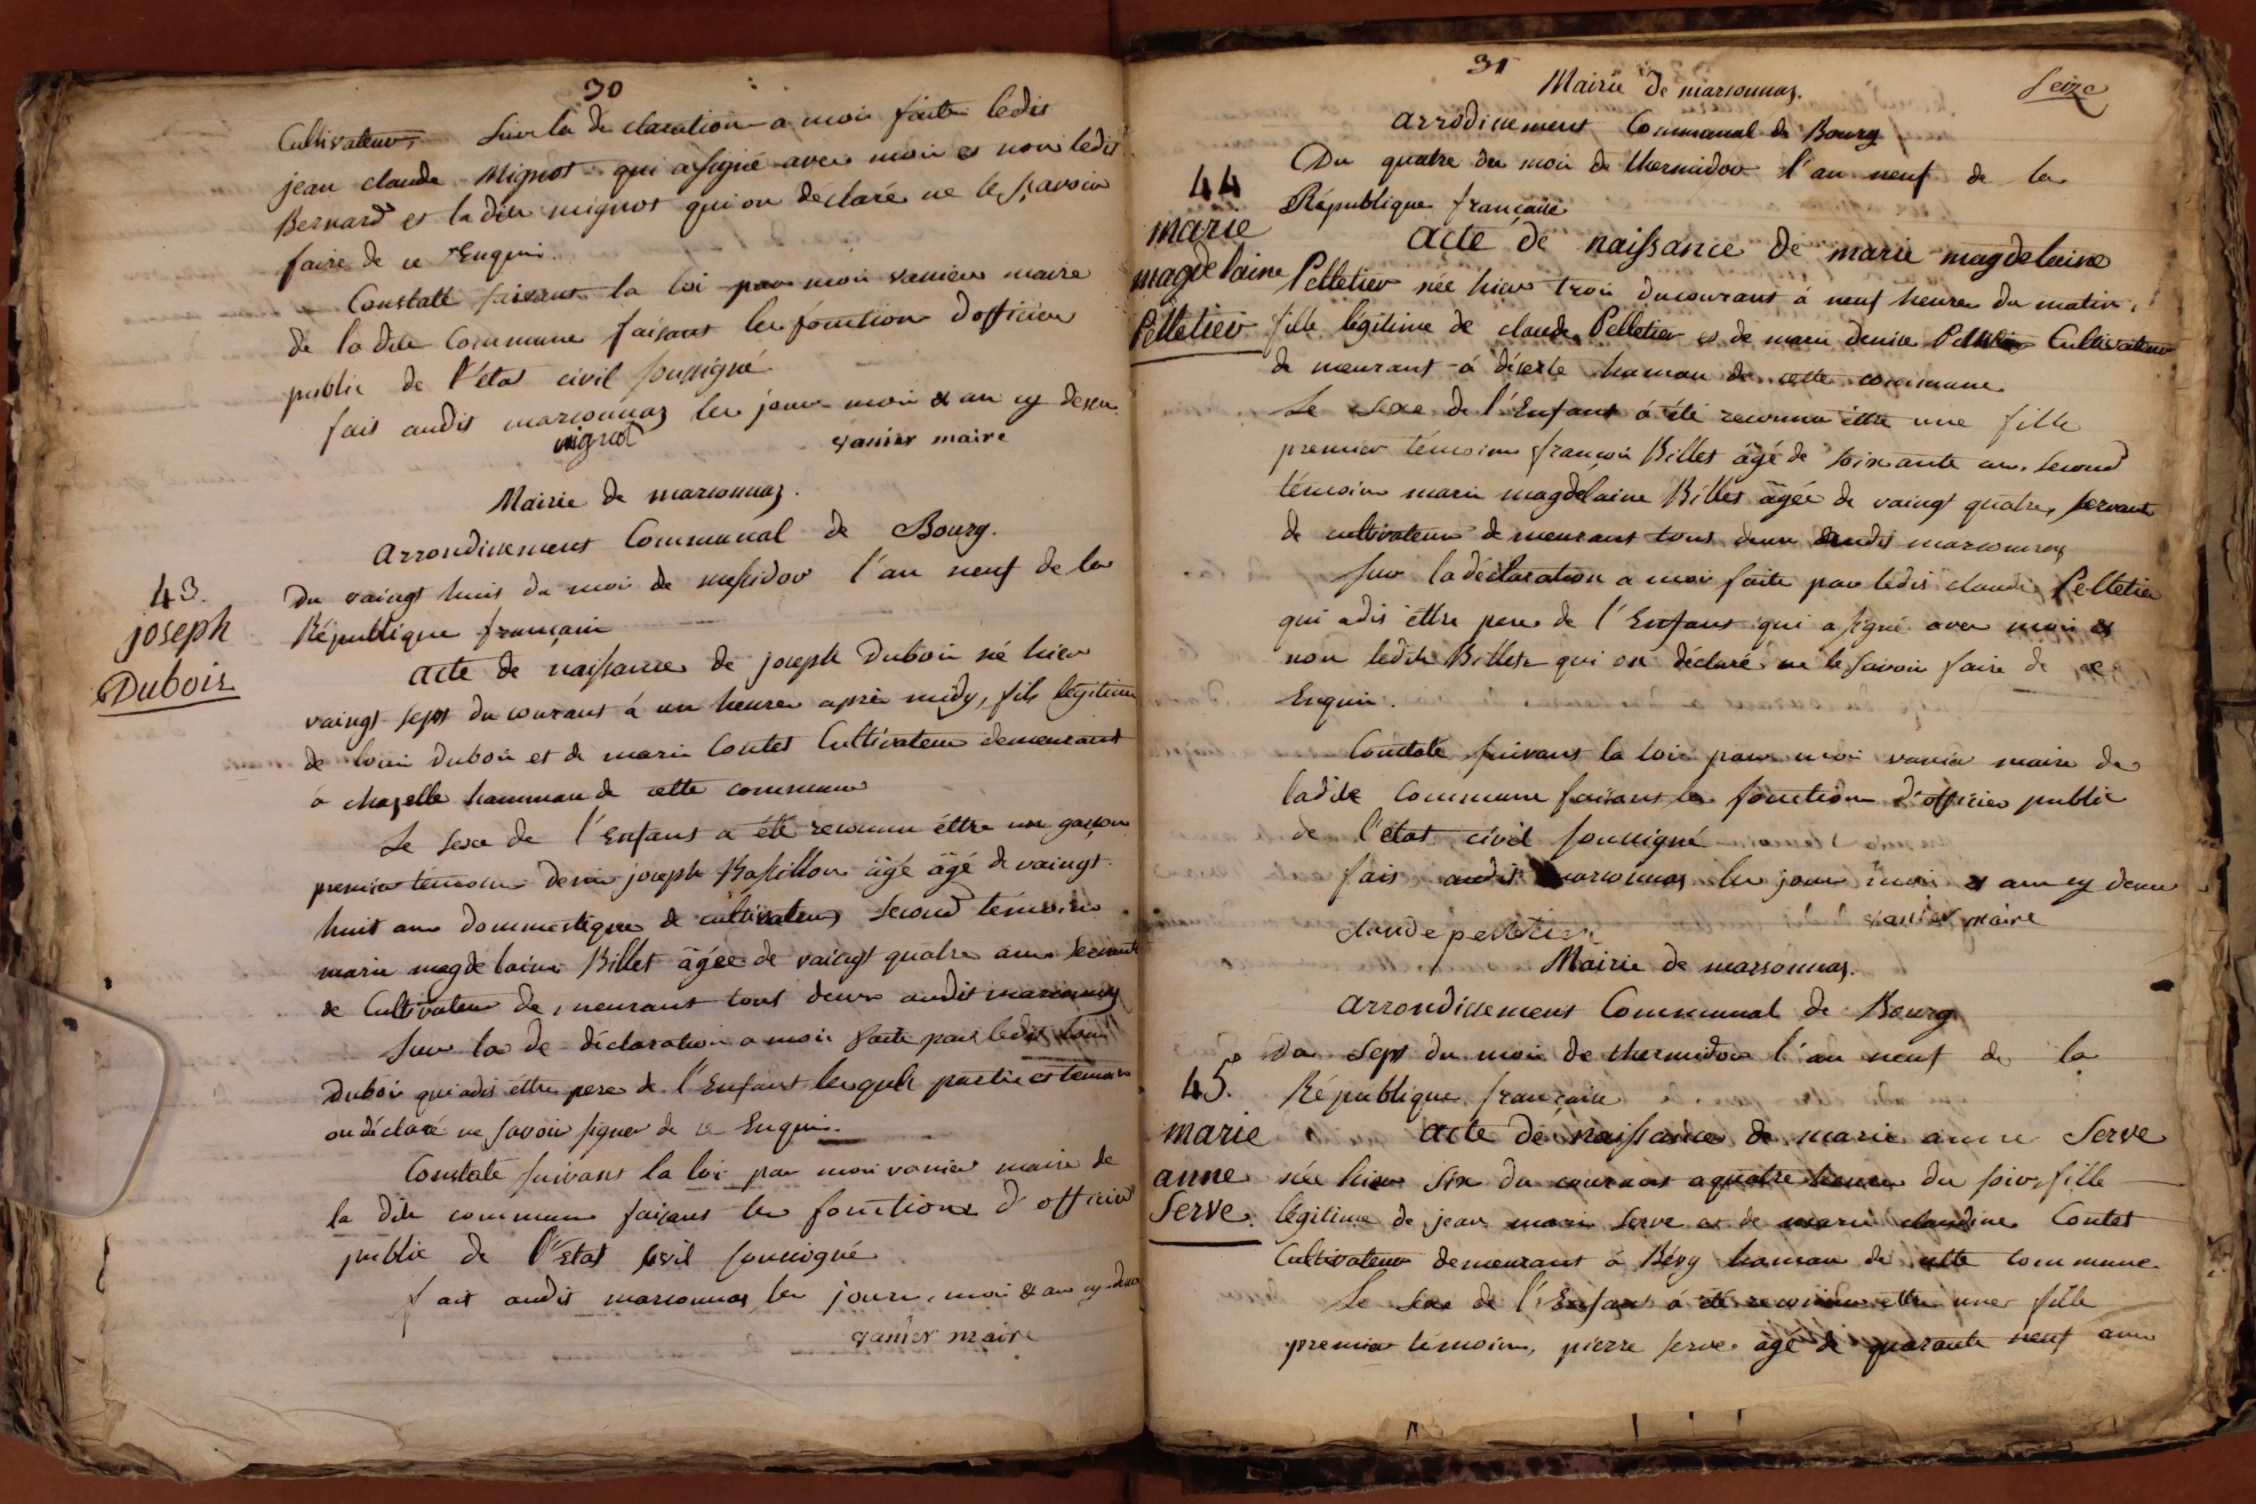 30
Cultivateurs, Sur la de claration a moi faite ledit
jean claude Mignot qui a signé avec moi et non ledit
Bernard et la dite mignot qui on déclaré ne le sçavoir
faire de ce Enquis.
Constaté suivant la loi par moi vanier maire
de la dite Commune faisant les fonction dofficier
public de l'état civil soussigné
fait audit marsonnas les jour moi & an cy dessu
mignot vanier maire
Mairie de marsonnas.
arrondissement Communal de Bourg.
43.
joseph
Dubois
Du vaingt huit du moi de messidor l'an neuf de la
République francaise
acte de naissance de joseph Duboi né hier
vaingt sept du courant á un heure aprè midy, fils légitime
de loui Duboi et de marie Contet Cultivateur demeurant
a chapelle hammau de cette commune
Le sexe de l'Enfant a été reconnu éttre un garçon
premier temoin joseph âgé âgé de vaingt
huit ans dommestique de cultivateur, Second témoin
marie magdelaine Billet âgée de vaingt quatre ans Servante
de Cultivateur de, meurant tout deux audit marsonnas
Sur la de déclaration a moi faite par ledit loui
Duboi qui adit éttre pere de l'Enfant lesquels partie et temoin
on déclaré ne savoir signer de ce Enquis.
Constaté suivant la loi par moi vanier maire de
la dite commune faisant les fonctions d'officier
public de l'Etat sivil soussigné
fait audit marsonnas les jour, moi & an cy dessu
vanier maire
31
Seize
Mairie de marsonnas.
arrodissement Communal de Bourg
44
marie
magdelaine
Pelletier
Du quatre du moi de thermidor l'an neuf de la
République française
acte de naissance de marie magdelaine
Pelletier née hier troi ducourant á neuf heure du matin,
fille légitime de claude Pelletier et de marie denise Cultivateur
de meurant á hamau de cette commune.
Le Sexe de l'Enfant á été reconnu éttre une fille
premier témoin françoi Billet âgé de soixante an. Second
témoin marie magdelaine Billet âgée de vaingt quatre, servante
de cultivateur demeurant tous deux audit marsonnas
Sur la déclaration a moi faite par ledit claude Pelletier
qui adit éttre pere de l'Enfant qui a signé avec moi et
non ledit Billet qui on déclaré ne le savoir faire de ce
Enquis.
Constaté suivant la loi par moi vanier maire de
ladite Commune faisant les fonction d'officier public
de l'état civil soussigné
fait audit marsonnas les jour moi & an cy dessu
claude pelletier vanier maire
Mairie de marsonnas.
arrondissement Communal de Bourg
45.
marie
anne
Serve.
Du Sept du moi de thermidor l'an neuf de la
République française
acte de naissance de marie anne Serve
née hier Six du courant a quatre heure du soir, fille
légitime de jean marie Serve et de marie claudine Contet
Cultivateur demeurant á Bévy hamau de cette commune
Le Sexe de l'Enfant á été reconnu éttre une fille
premier témoin, pierre serve âgé de quarante neuf ans